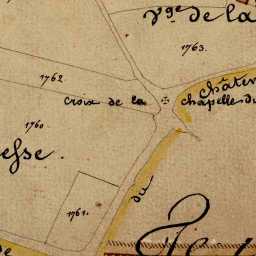 vge de la
1763.
1762
châte
croix de la chapelle du
1760
esse.
du
1761.
de